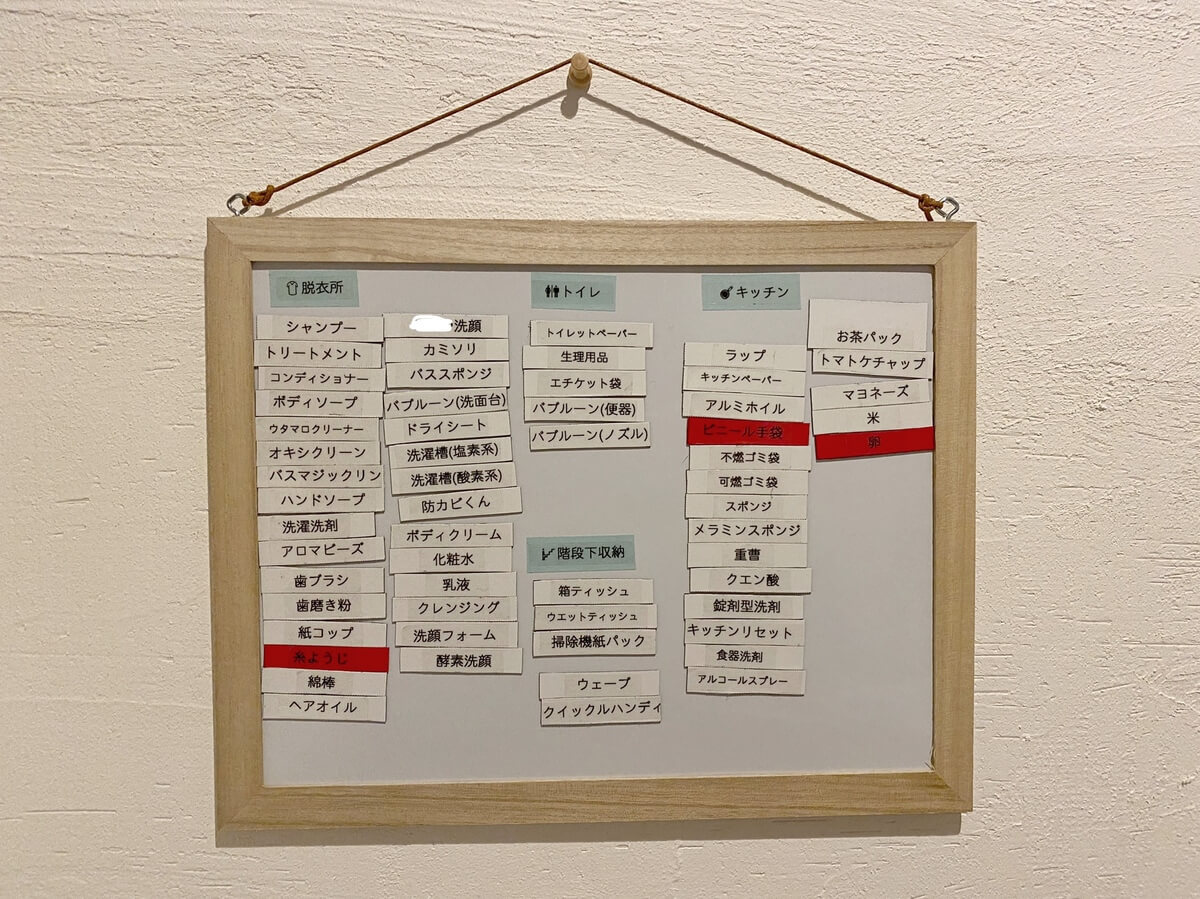 脱衣所
シャンプー
トリートメント
コンディショナー
ボディソープ
ウタマロクリーナー
オキシクリーン
バスマジックリン
ハンドソープ
洗濯洗剤
アロマビーズ
歯ブラシ
歯磨き粉
紙コップ
糸ようじ
綿棒
ヘアオイル
洗顔
カミソリ
バススポンジ
バブルーン(洗面台)
ドライシート
洗濯槽(塩素系)
洗濯槽(酸素系)
防カビくん
ボディクリーム
化粧水
乳液
クレンジング
洗顔フォーム
酵素洗顔
トイレ
トイレットペーパー
生理用品
エチケット袋
バブルーン(便器)
バブルーン(ノズル)
階段下収納
箱ティッシュ
ウエットティッシュ
掃除機紙パック
ウェーブ
クイックルハンディ
キッチン
ラップ
キッチンペーパー
アルミホイル
ビニール手袋
不燃ゴミ袋
可燃ゴミ袋
スポンジ
メラミンスポンジ
重曹
クエン酸
錠剤型洗剤
キッチンリセット
食器洗剤
アルコールスプレー
お茶パック
トマトケチャップ
マヨネーズ
米
卵